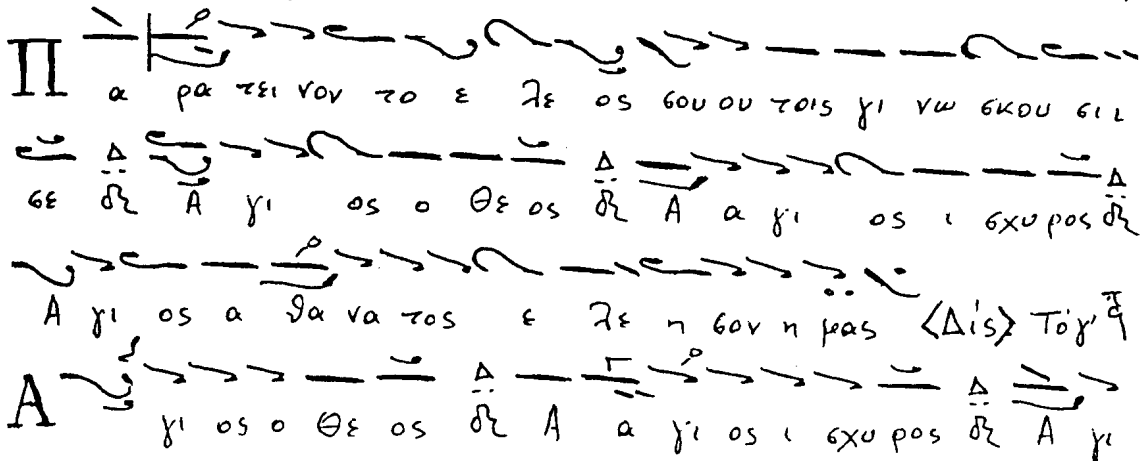 Π α ρα τει νον το ε λε ος σου ου τοις γι νω σκου σι ι
σε Δ δι Α γι ος ο Θε ος Δ δι Α α γι ος ι σχυ ρος Δ δι
Α γι ος α θα να τος ε λε η σον η μας <Δίς> Τό γ' π̈ q
Α γι ος ο Θε ος Δ δι Α α γι ος ι σχυ ρος Δ δι Α γι